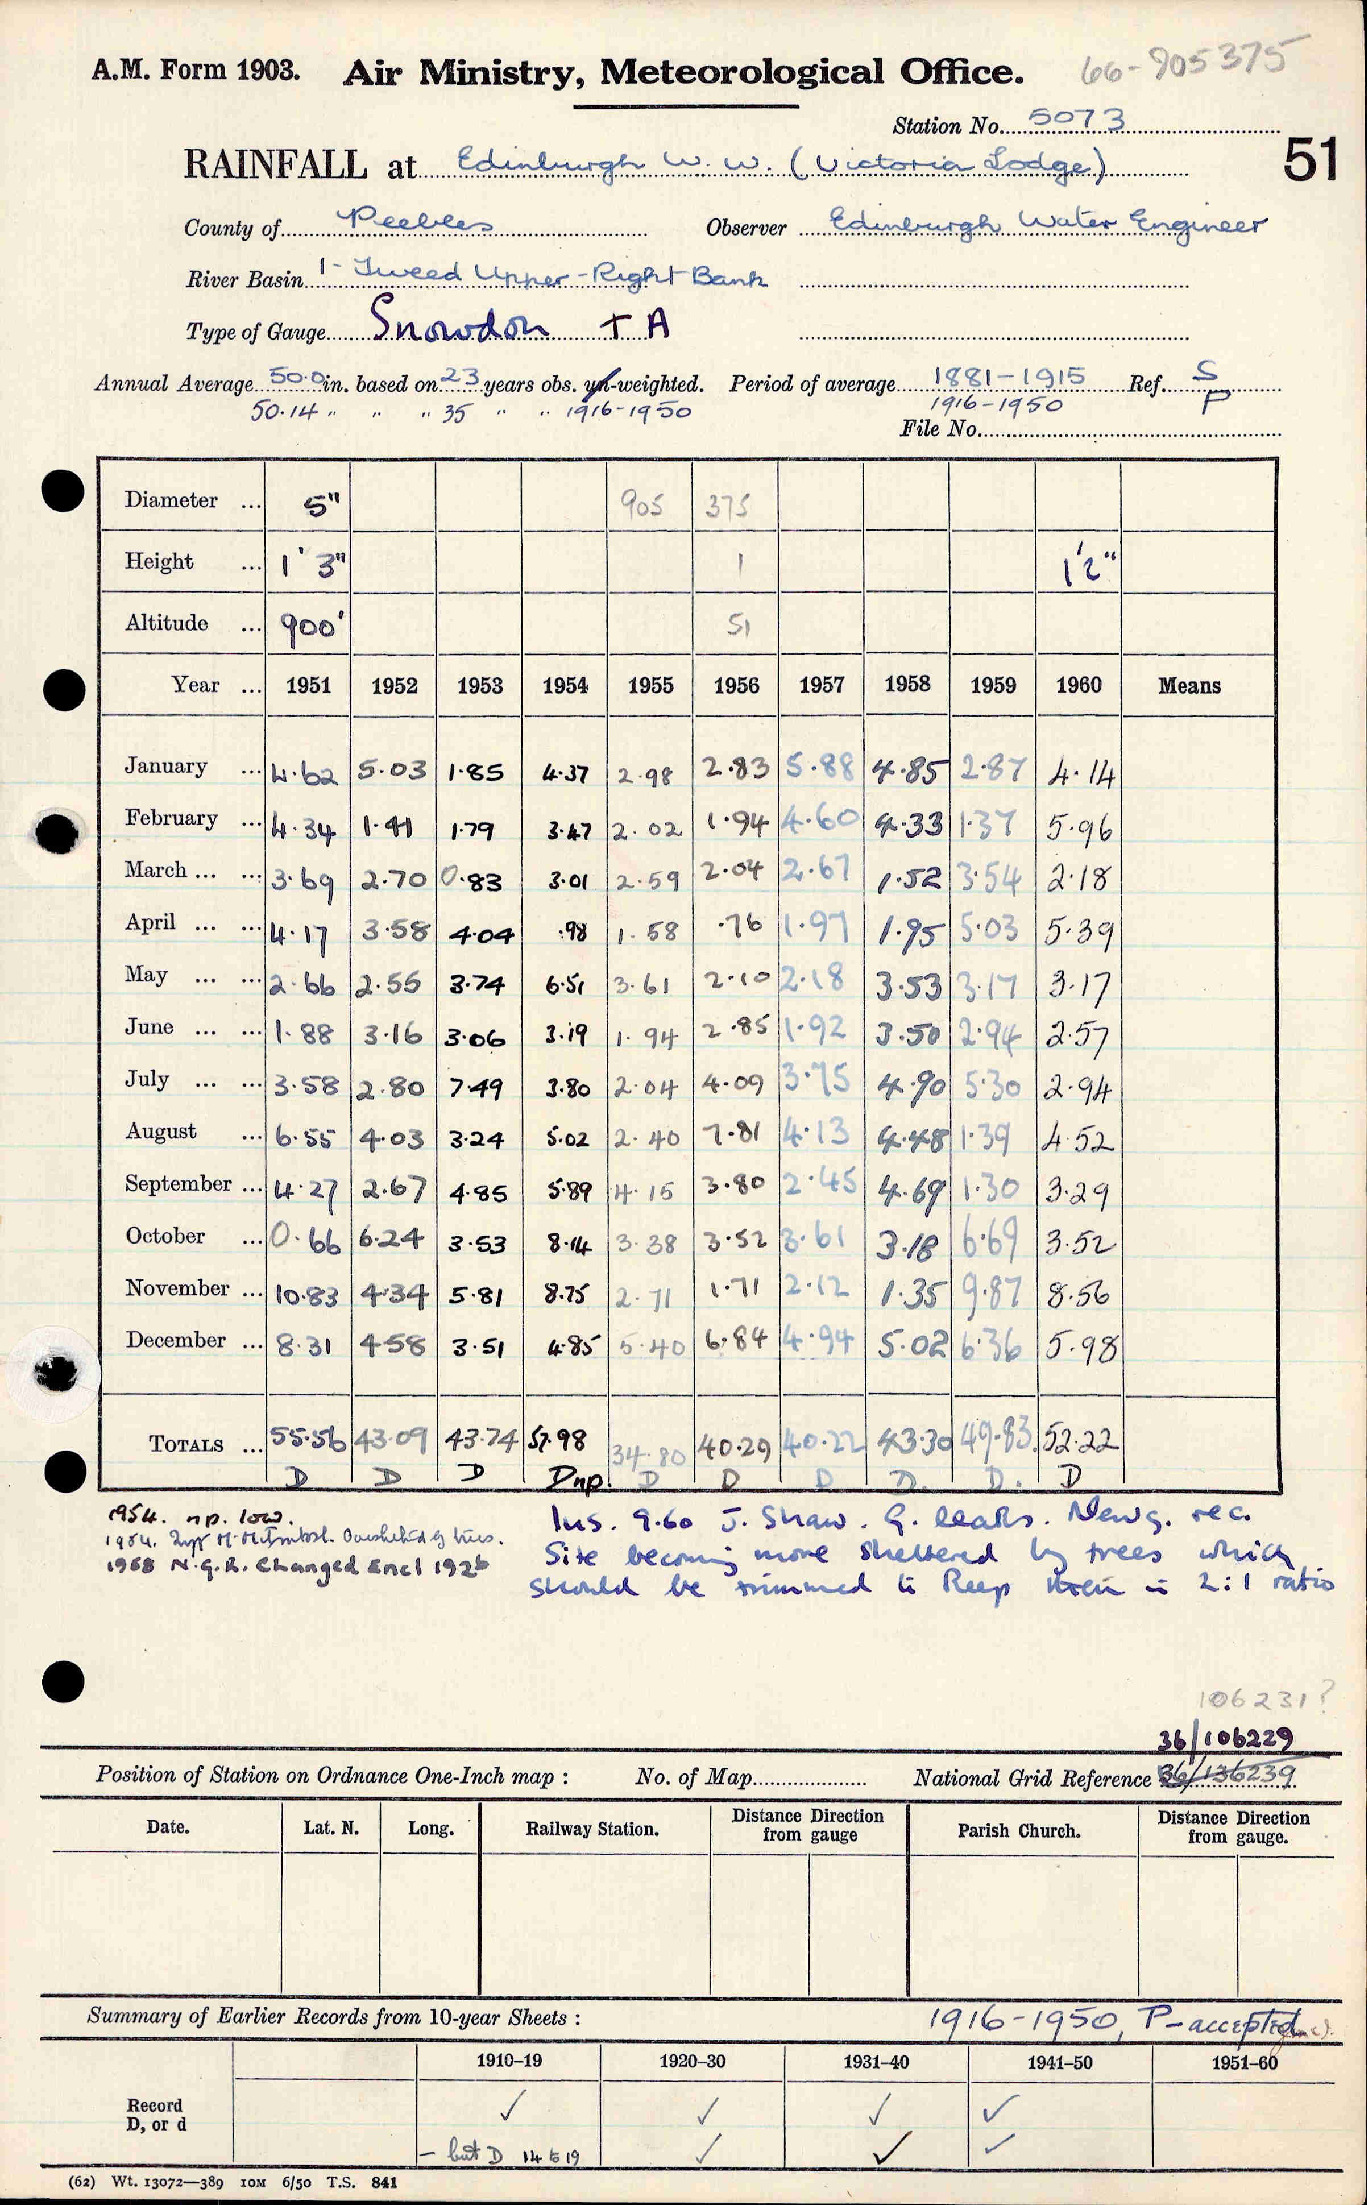 A.M. Form 1903. Air Ministry, Meteorological Office. 66-905375
Station No. 5073
RAINFALL at Edinburgh W. W. (Victoria Lodge) 51
County of Peebles Observer Edinburgh Water Engineer
River Basin 1- Tweed Upper - Right Bank
Type of Gauge Snowdon + A
Annual Average 50.0 in. based on 23 years obs. un-weighted. Period of average 1881-1915 Ref. S
50.14 " " " 35 " " 1916-1950 1916-1950 P
File No.
Diameter ... 5" 905 375
Height ... 1' 3" 1 1'2"
Altitude ... 900' 51
Year ... 1951 1952 1953 1954 1955 1956 1957 1958 1959 1960 Means
January ... 4.62 5.03 1.85 4.37 2.98 2.83 5.88 4.85 2.87 4.14
February ... 4.34 1.41 1.79 3.47 2.02 1.94 4.60 4.33 1.37 5.96
March ... ... 3.69 2.70 0.83 3.01 2.59 2.04 2.67 1.52 3.54 2.18
April ... ... 4.17 3.58 4.04 .98 1.58 .76 1.97 1.95 5.03 5.39
May ... ... 2.66 2.55 3.74 6.51 3.61 2.10 2.18 3.53 3.17 3.17
June ... ... 1.88 3.16 3.06 3.19 1.94 2.85 1.92 3.50 2.94 2.57
July ... ... 3.58 2.80 7.49 3.80 2.04 4.09 3.75 4.90 5.30 2.94
August ... 6.55 4.03 3.24 5.02 2.40 7.81 4.13 4.48 1.39 4.52
September ... 4.27 2.67 4.85 5.89 4.15 3.80 2.45 4.69 1.30 3.29
October ... 0.66 6.24 3.53 8.14 3.38 3.52 3.61 3.18 6.69 3.52
November ... 10.83 4.34 5.81 8.75 2.71 1.71 2.12 1.35 9.87 8.56
December ... 8.31 4.58 3.51 4.85 5.40 6.84 4.94 5.02 6.36 5.98
TOTALS ... 55.56 43.09 43.74 57.98 34.80 40.29 40.22 43.30 49.83 52.22
D D D Dnp. D D D D. D. D
1954. np. low. Ins. 9.60 J. Shaw. G. leaks. Newg. rec.
Site becoming more sheltered by trees which
1968 N.G.R. Changed Encl 1926 should be trimmed to keep them in 2:1 ratio
106231?
36/106229
Position of Station on Ordnance One-Inch map : No. of Map National Grid Reference 36/136239
Date. Lat. N. Long. Railway Station. Distance Direction from gauge Parish Church. Distance Direction from gauge.
Summary of Earlier Records from 10-year Sheets : 1916-1950, P-accepted
1910-19 1920-30 1931-40 1941-50 1951-60
Record ✓ ✓ ✓ ✓
D, or d
- but D 14 to 19 ✓ ✓ ✓
(62) Wt. 13072—389 10M 6/50 T.S. 841